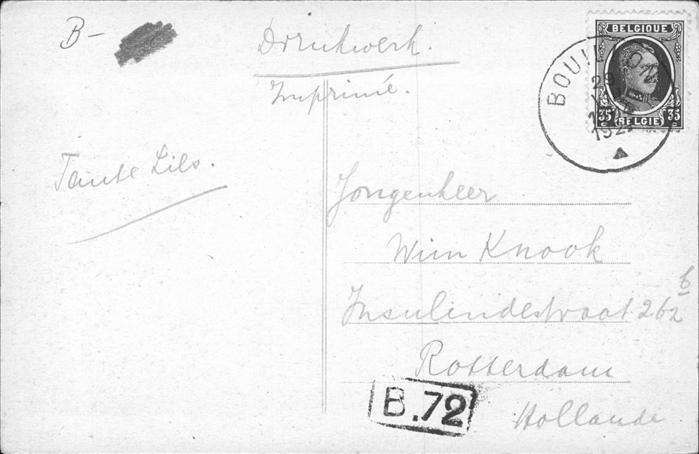 B-
Drukwerk.
Imprimé.
BELGIQUE
35 35
BELGIE
BOUILLO
29
192
Tante Lies.
Jongenheer
Wim Knook
Insulindestraat 262 b
Rotterdam
Hollande
B.72